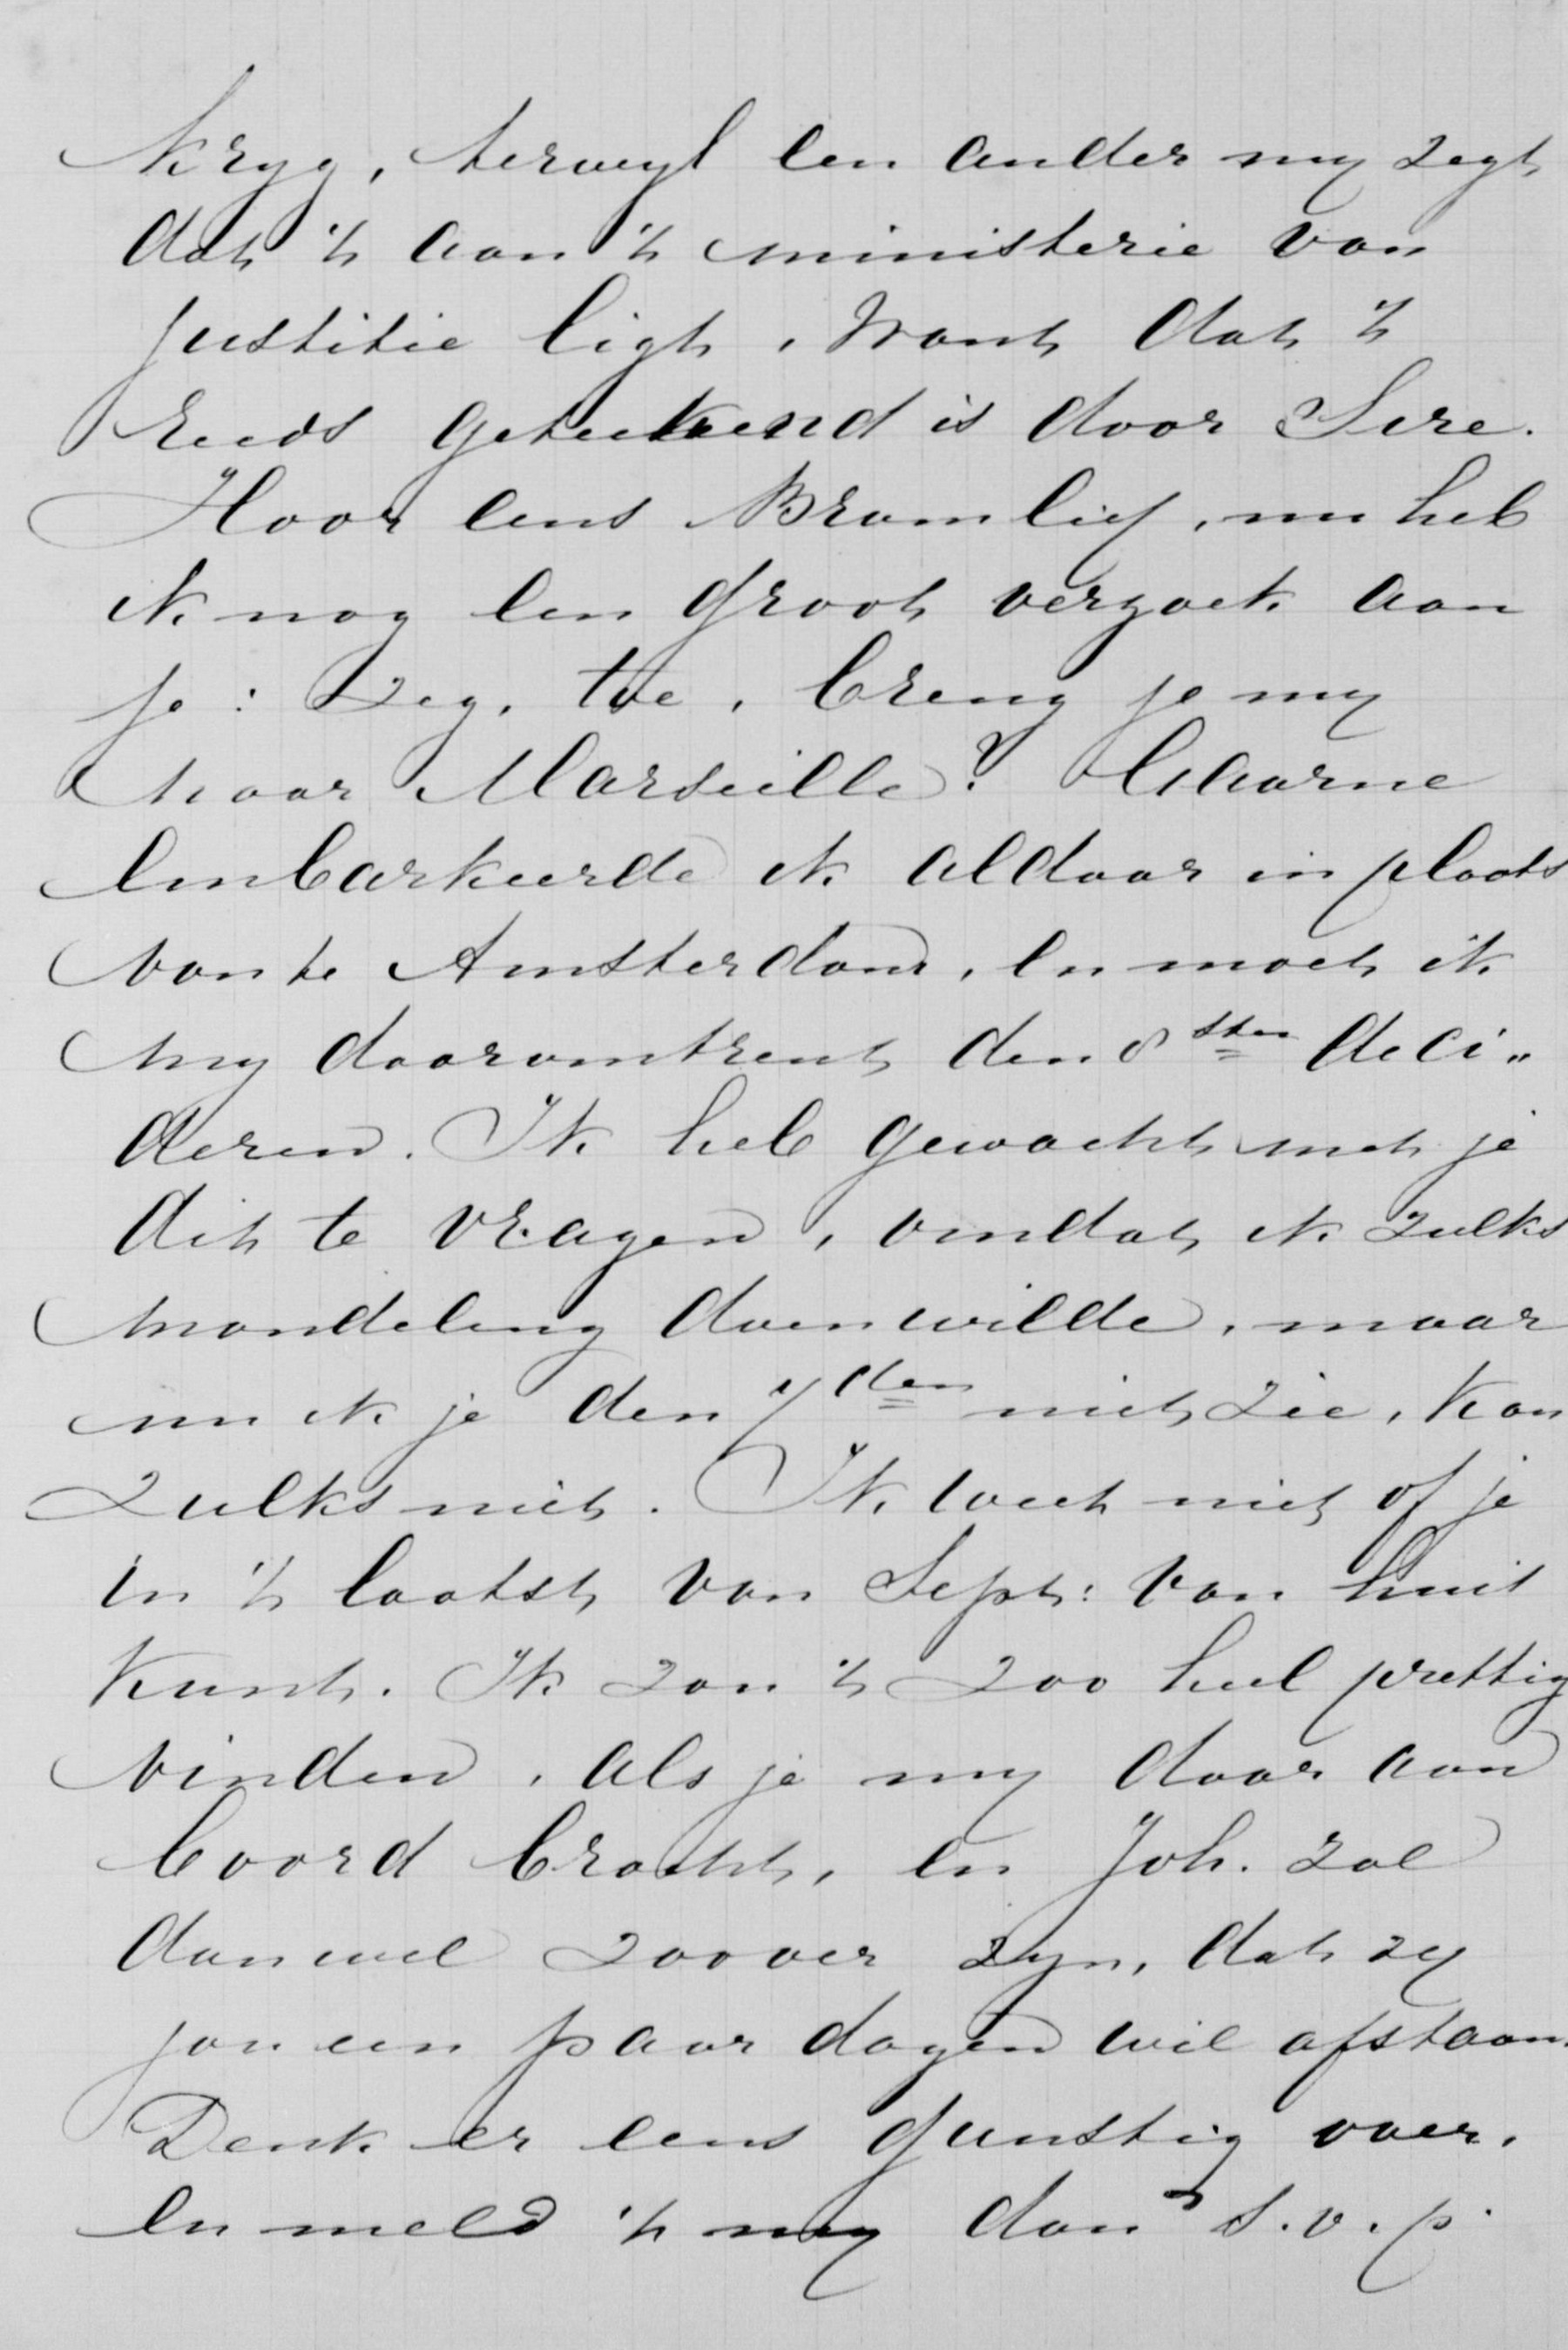 kryg, terwyl een ander my zegt
dat 't aan 't ministerie van
justitie ligt, want dat 't
reeds geteekend is door Sire.
Hoor eens Bram lief, nu heb
ik nog een groot verzoek aan
je: Zeg, toe, breng je my
naar Marseille? Gaarne
embarkeerde ik aldaar in plaats
van te Amsterdam, en moet ik
my daaromtrent den 8sten deci„
deren. Ik heb gewacht met je
dit te vragen, omdat ik zulks
mondeling doen wilde, maar
nu ik je den 7den niet zie, kan
zulks niet. Ik weet niet of je
in 't laatst van Sept: van huis
kunt. Ik zou 't zoo heel prettig
vinden, als je my daar aan
boord bracht, en Joh. zal
dan wel zoover zyn, dat zy
jou een paar dagen wil afstaan.
Denk er eens gunstig over,
en meld 't my dan s.v.p.